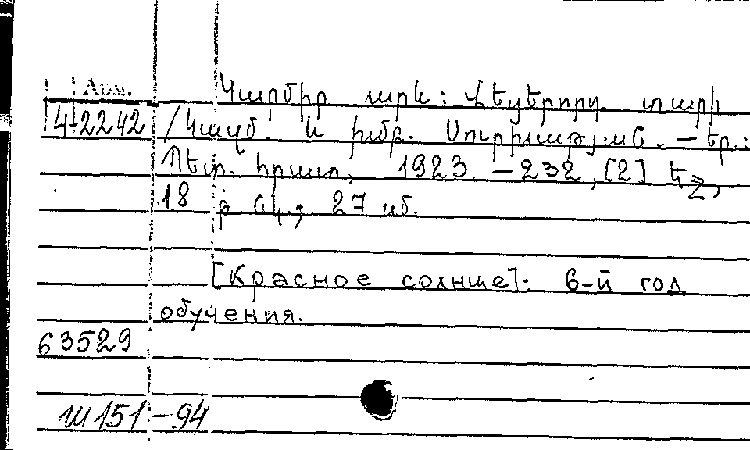 Арм. Կարմիր արև: Վեցերորդ տարի
4-2242 /Կազմ. և խմբ. Մուրխաթյան. – Եր.:
Պետ. հրատ., 1923. – 232, [2] եջ,
18 թ. նկ., 27 սմ.
[Красное солнце]. 6-й год
обучения.
63529
151-94